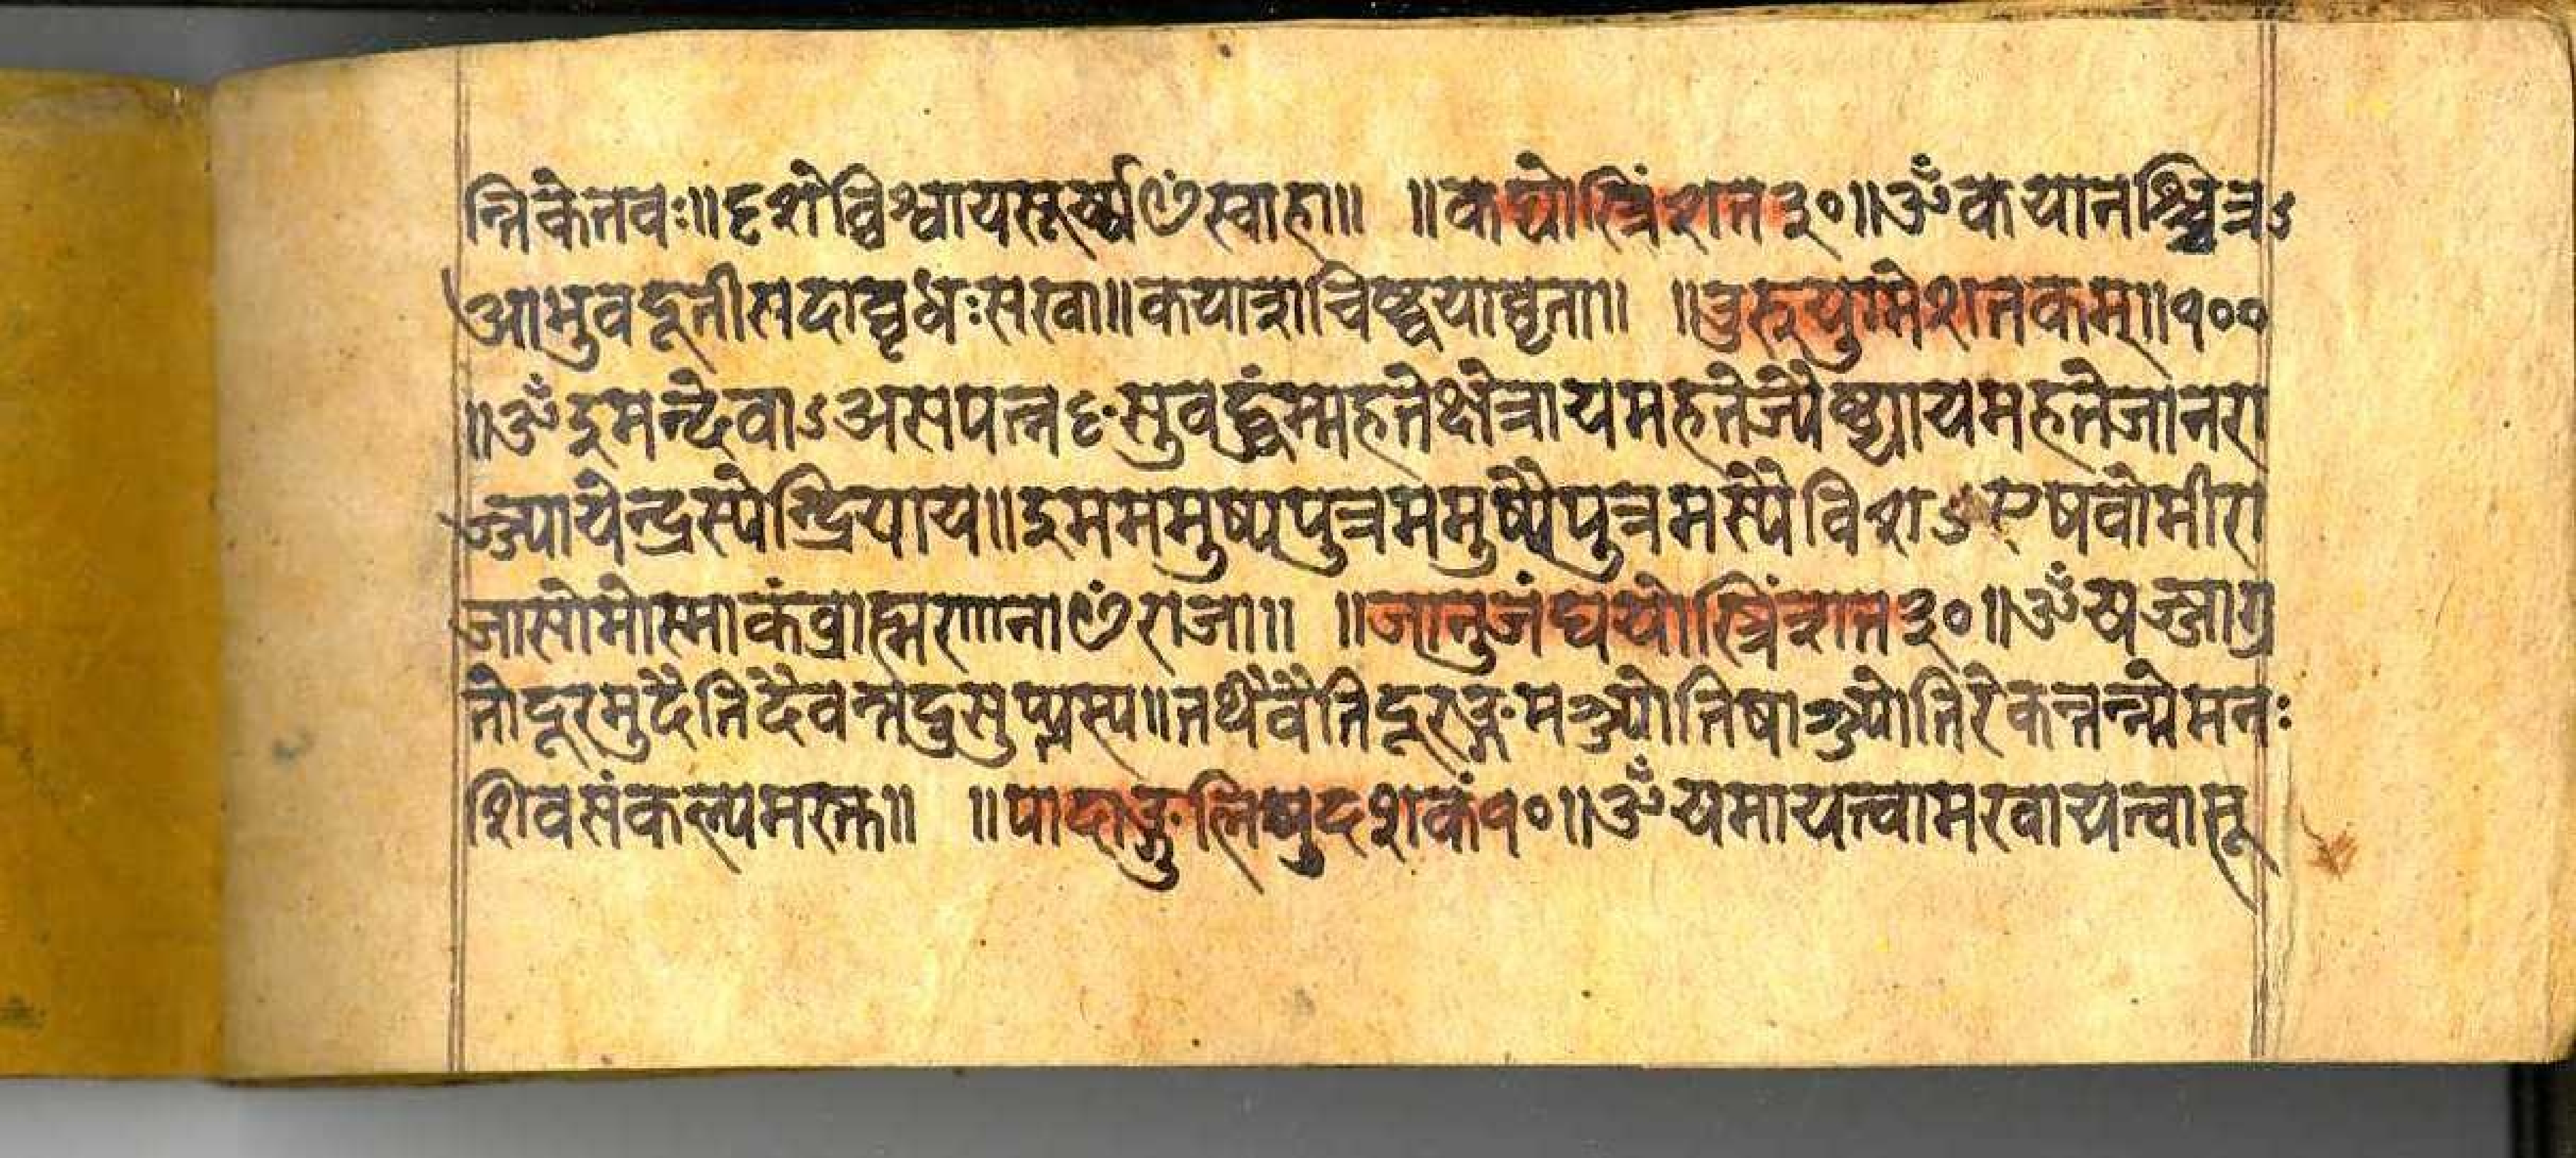 न्तिकेतवः॥दृशेव्विश्वायसूर्य्यꣳस्वाहा॥ ॥कट्योस्त्रिंशत३०॥ॐकयानश्च्चित्रऽ
आभुवदूतीसदाव्वृधःसखा॥कयाशचिष्ठ्ठयाव्वृता॥ ॥उरूयुग्मेशतकम्॥१००
॥ॐइमन्देवाऽअसपत्नदृःसुवद्ध्वंम्महतेक्षेत्रायमहतेज्यैष्ठ्यायमहतेजानरा
ज्यायेन्द्रस्येन्द्रियाय॥इमममुष्यपुत्रममुष्यैपुत्रमस्यैविशऽएषवोमीरा
जासोमोस्माकंव्राह्मणानाꣳराजा॥ ॥जानुजंघयोस्त्रिंशत३०॥ॐय्यज्जाग्र
तोदूरमुदैतिदैवन्तदुसुप्प्तस्य॥तथैवैतिदूरङ्गमञ्ज्योतिषाञ्ज्योतिरेकन्तन्न्मेमनः
शिवसंकल्पमस्तु॥ ॥पादाङ्गुलिषुदशकं१०॥ॐयमायत्वामखायत्वासू